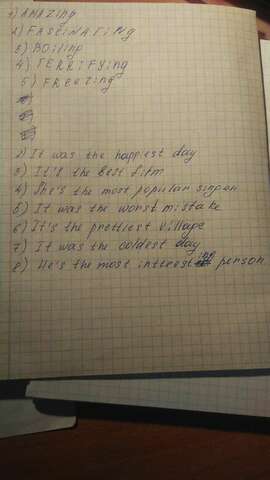 1) AMAZing
2) FASCINATING
3) BOiling
4) TERRiFying
5) FREEZing
2) It was the happiest day
3) It's the best film
4) She's the most popular singer
5) It was the worst mistake
6) It's the prettiest village
7) It was the coldest day
8) He's the most interesting person